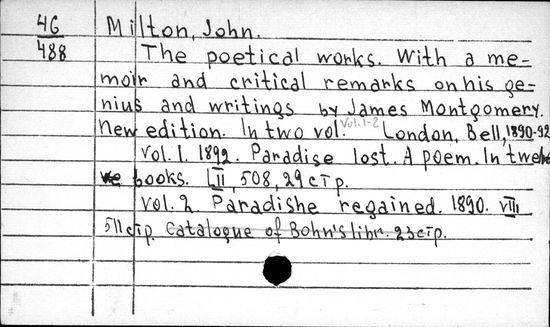 4G Milton, John.
488 The poetical works. With a me-
moir and critical remarks on his ge-
nius and writings by James Montgomery.
New edition. In two vol. Vol.1-2 London, Bell, 1890-92
Vol. 1. 1892. Paradise lost. A poem. In twel
ve books. LII, 508, 29 cтp.
Vol. 2 Paradishe regained. 1890. VIII
511 cтp. Catalogue of Bohn's libr. 23 cтp.